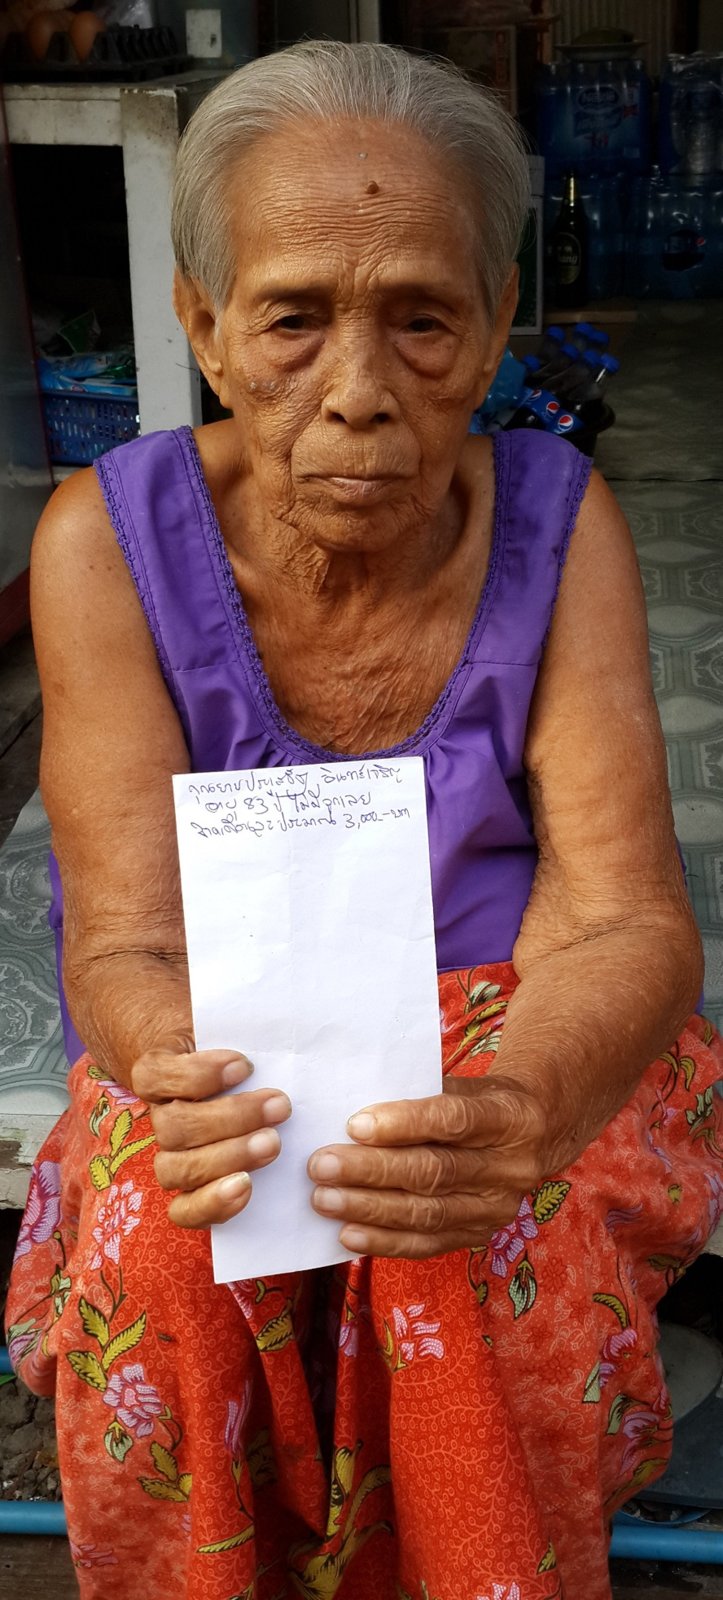 คุณยายประเสริฐ อินทร์เจริญ
อายุ 83 ปี ไม่มีลูกเลย
ประมาณ 3,000-บาท
pepsi